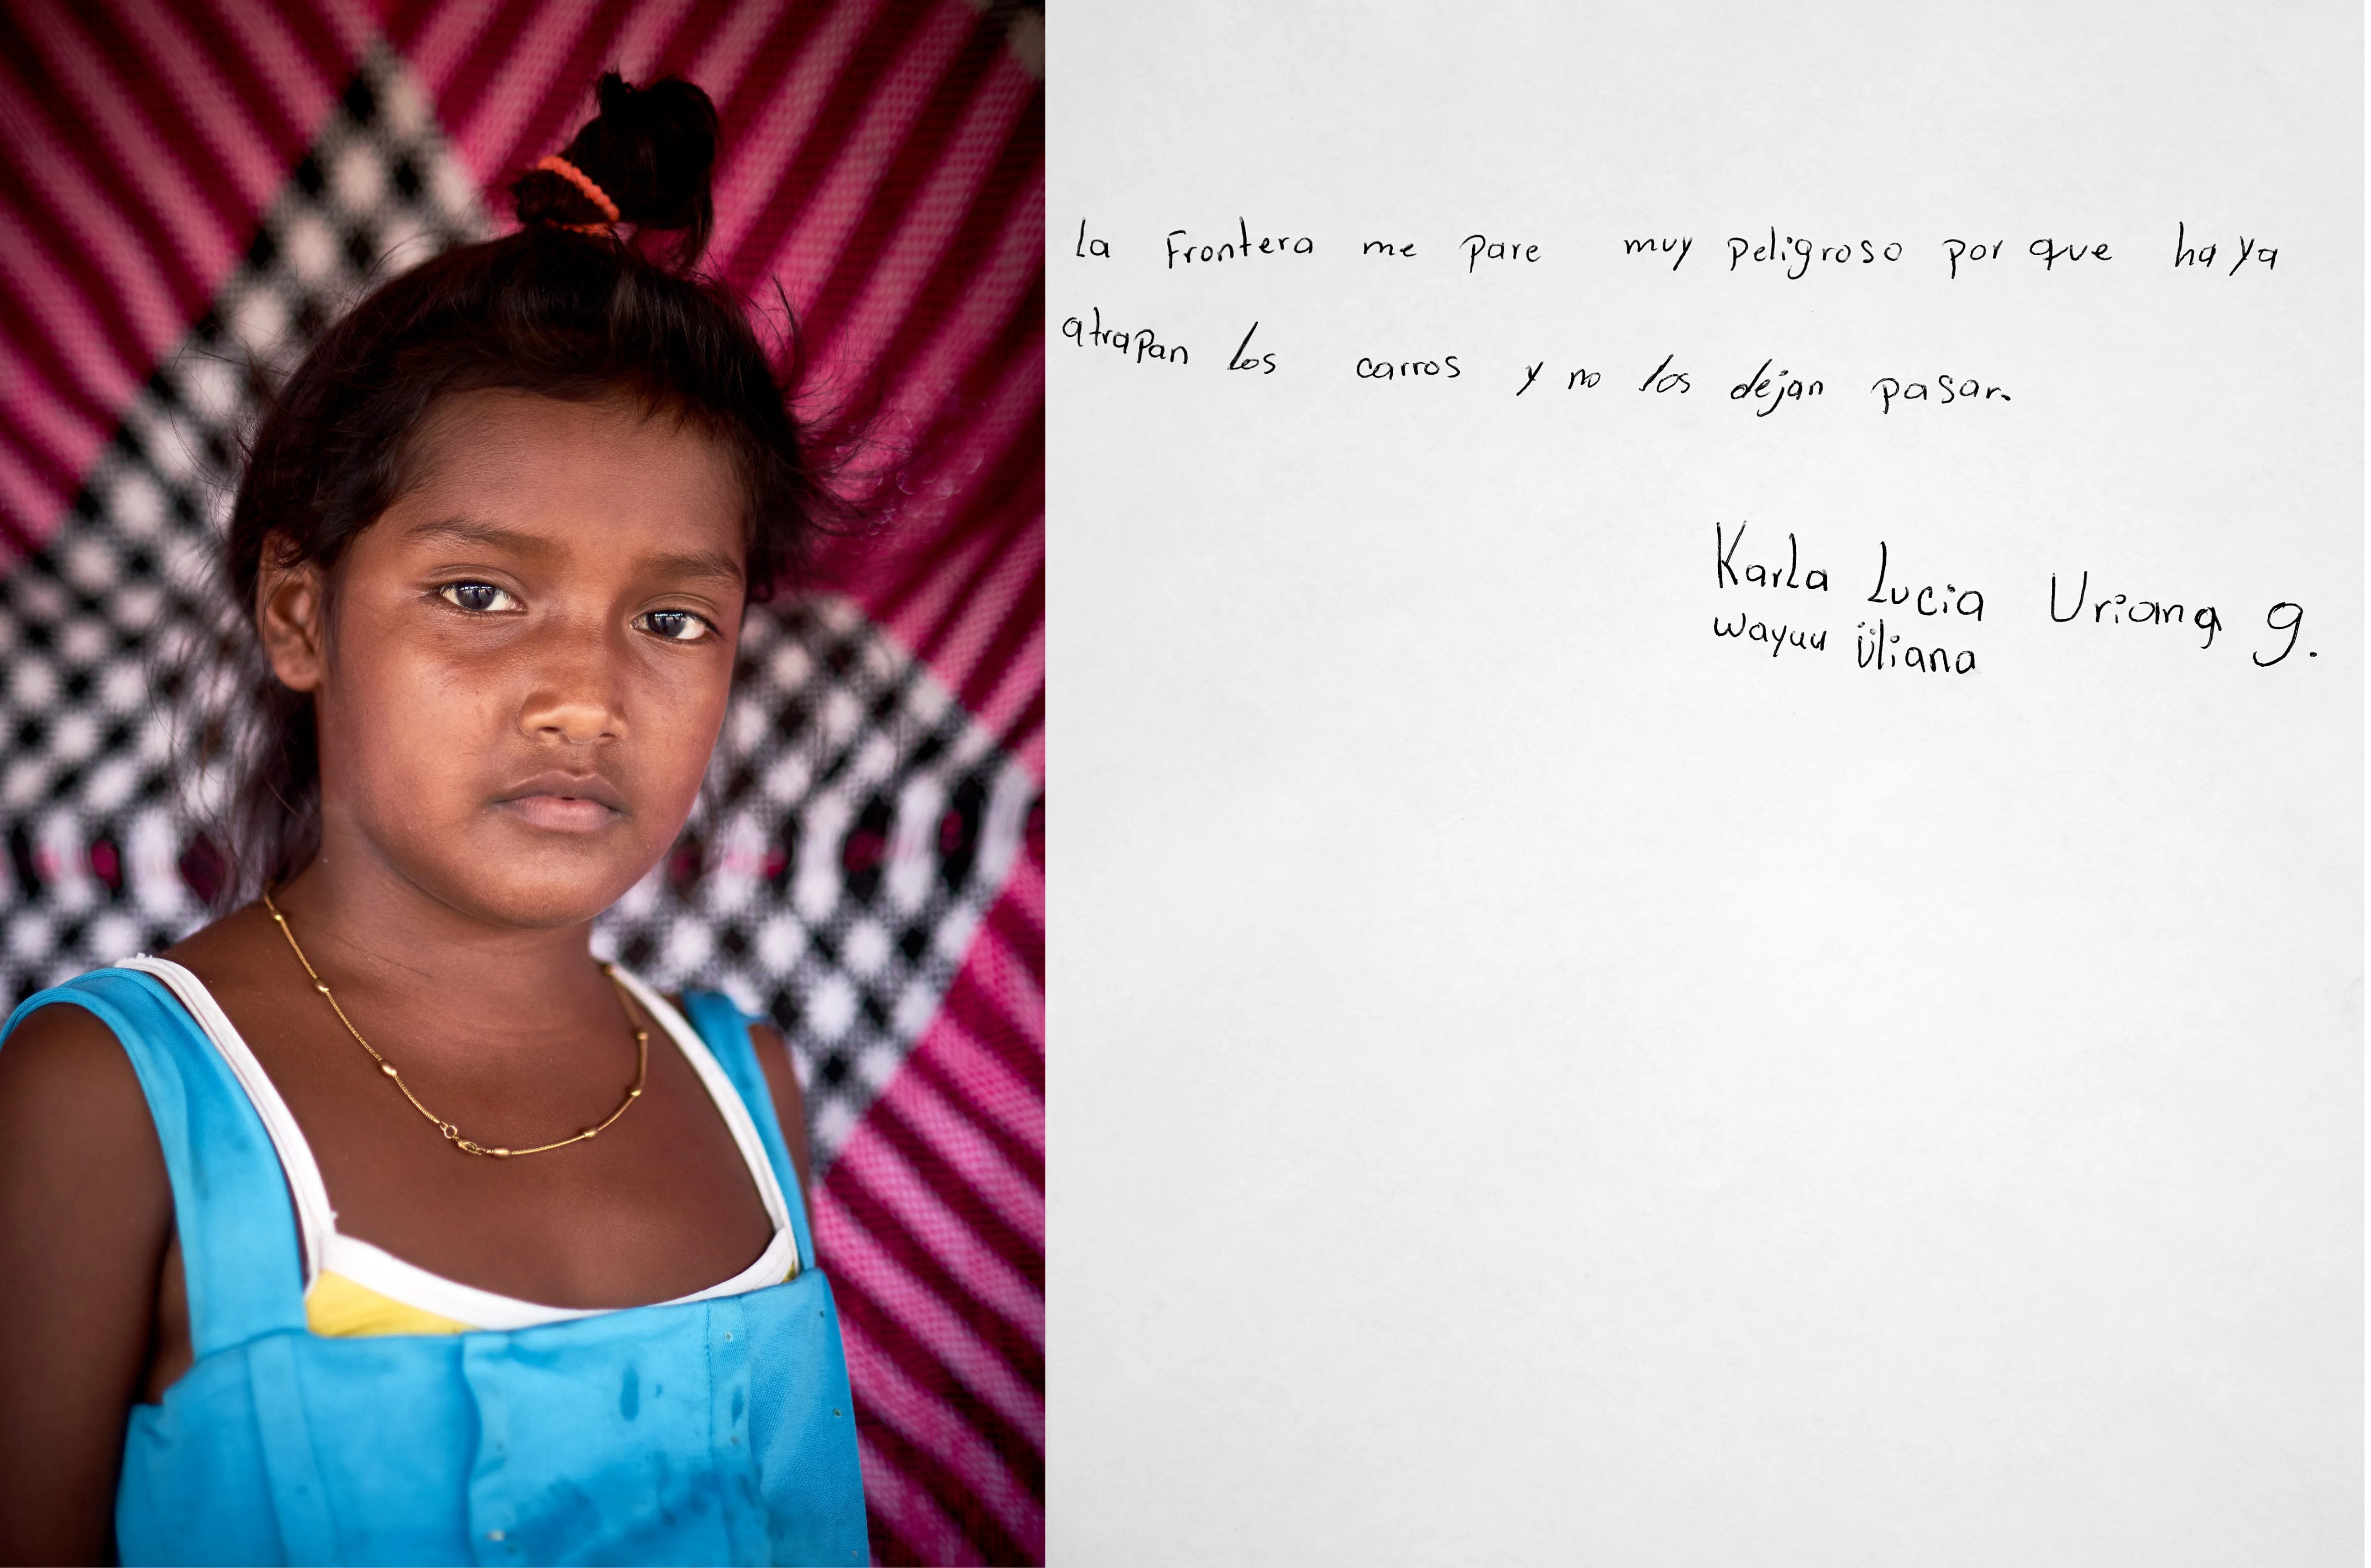 la Frontera me pare muy peligroso por que haya
atrapan los carros y no los dejan pasar.
Karla Lucia Uriana g.
wayuu Üliana